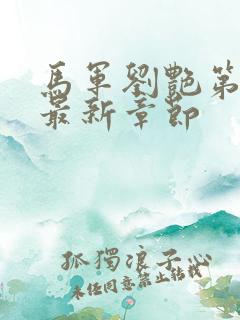 馬軍劉艷第
最新章節
孤獨浪子心
未经同意禁止转载